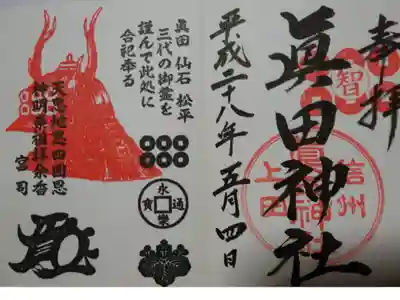 奉拝
智
眞田神社
信州
上田
眞田神社
平成二十八年五月四日
眞田 仙石 松平
三代の御霊を
謹んで此処に
合祀奉る
天恩地恩四囲恩
宮司
永樂通寳